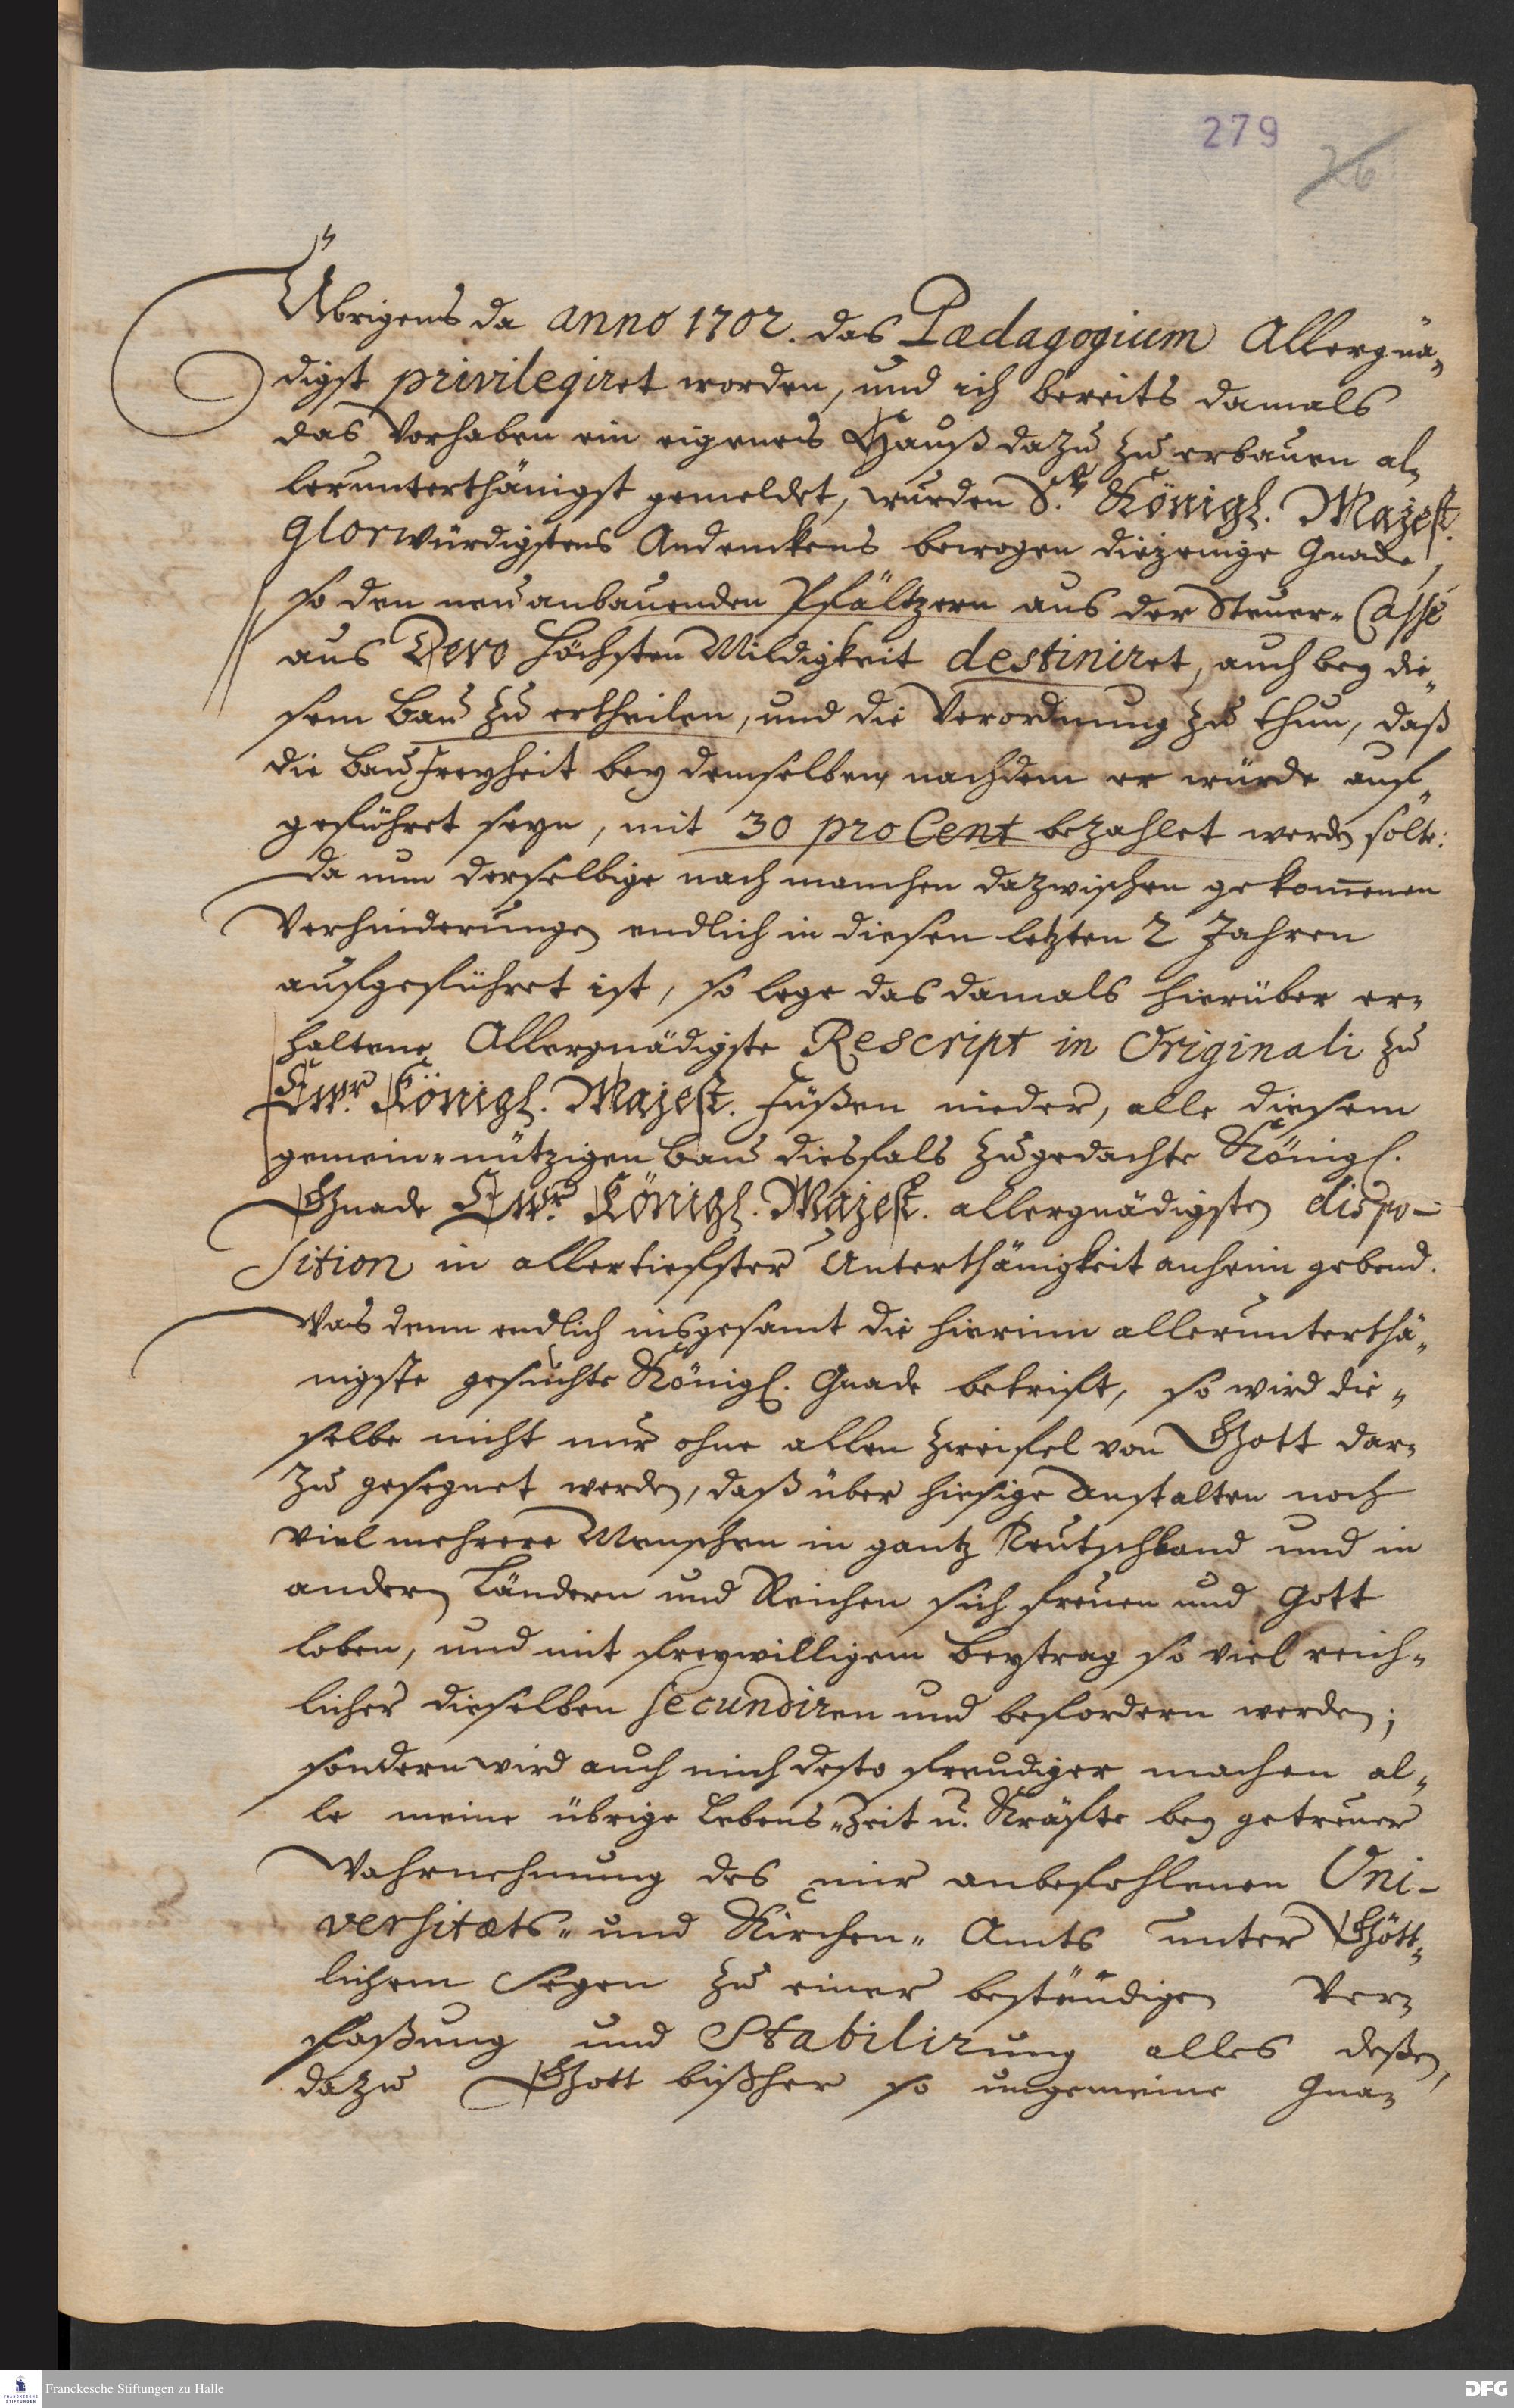 279
26
Übrigens da anno 1702. das Pædagogium Allergnä„
digst privilegiret worden, und ich bereits damals
das Vorhaben ein eigenes Hauß dazu zu erbauen al„
lerunterthänigst gemeldet, wurden Sr. Königl. Majest.
Glorwürdigstens Andenckens bewogen diejenige Gnade,
so den neuanbauenden Pfältzern aus der Steuer-Casse
aus Dero höchsten Mildigkeit destiniret, auch bey die„
sem Bau zu ertheilen, und die Verordnung zu thun, daß
die Baufreyheit bey demselben, nachdem er würde auf„
geführet seyn, mit 30 pro Cent bezahlet werden solte:
Da nun derselbige nach manchen dazwischen gekom̄enen
Verhinderungen endlich in diesen letzten 2 Jahren
aufgeführet ist, so lege das damals hierüber er„
haltene Allergnädigste Rescript in Originali zu
Ewr. Königl. Majest. Füßen nieder, alle diesem
gemein-nützigen Bau diesfals zugedachte Königl.
Gnade Ewr. Königl. Majest. allergnädigsten dispo-
sition in allertieffster Unterthänigkeit anheim gebend.
Was denn endlich insgesamt die hierinn allerunterthä„
nigste gesuchte Königl. Gnade betrift, so wird die„
selbe nicht nur ohne allen Zweifel von Gott dar„
zu gesegnet werden, daß über hiesige Anstalten noch
viel mehrere Menschen in gantz Teutschland und in
andern Ländern und Reichen sich freuen und Gott
loben, und mit freywilligem Beytrag so viel reich„
licher dieselben secundiren und befordern werden;
sondern wird auch mich desto freudiger machen al„
le meine übrige Lebens-Zeit u. Kräfte bey getreuer
Wahrnehmung des mir anbefohlenen Uni-
versitæts- und Kirchen-Amts unter Gött„
lichem Segen zu einer beständigen Ver„
faßung und Stabilirung alles deßen,
dazu Gott bißher so ungemeine Gna„
Franckesche Stiftungen zu Halle
DFG